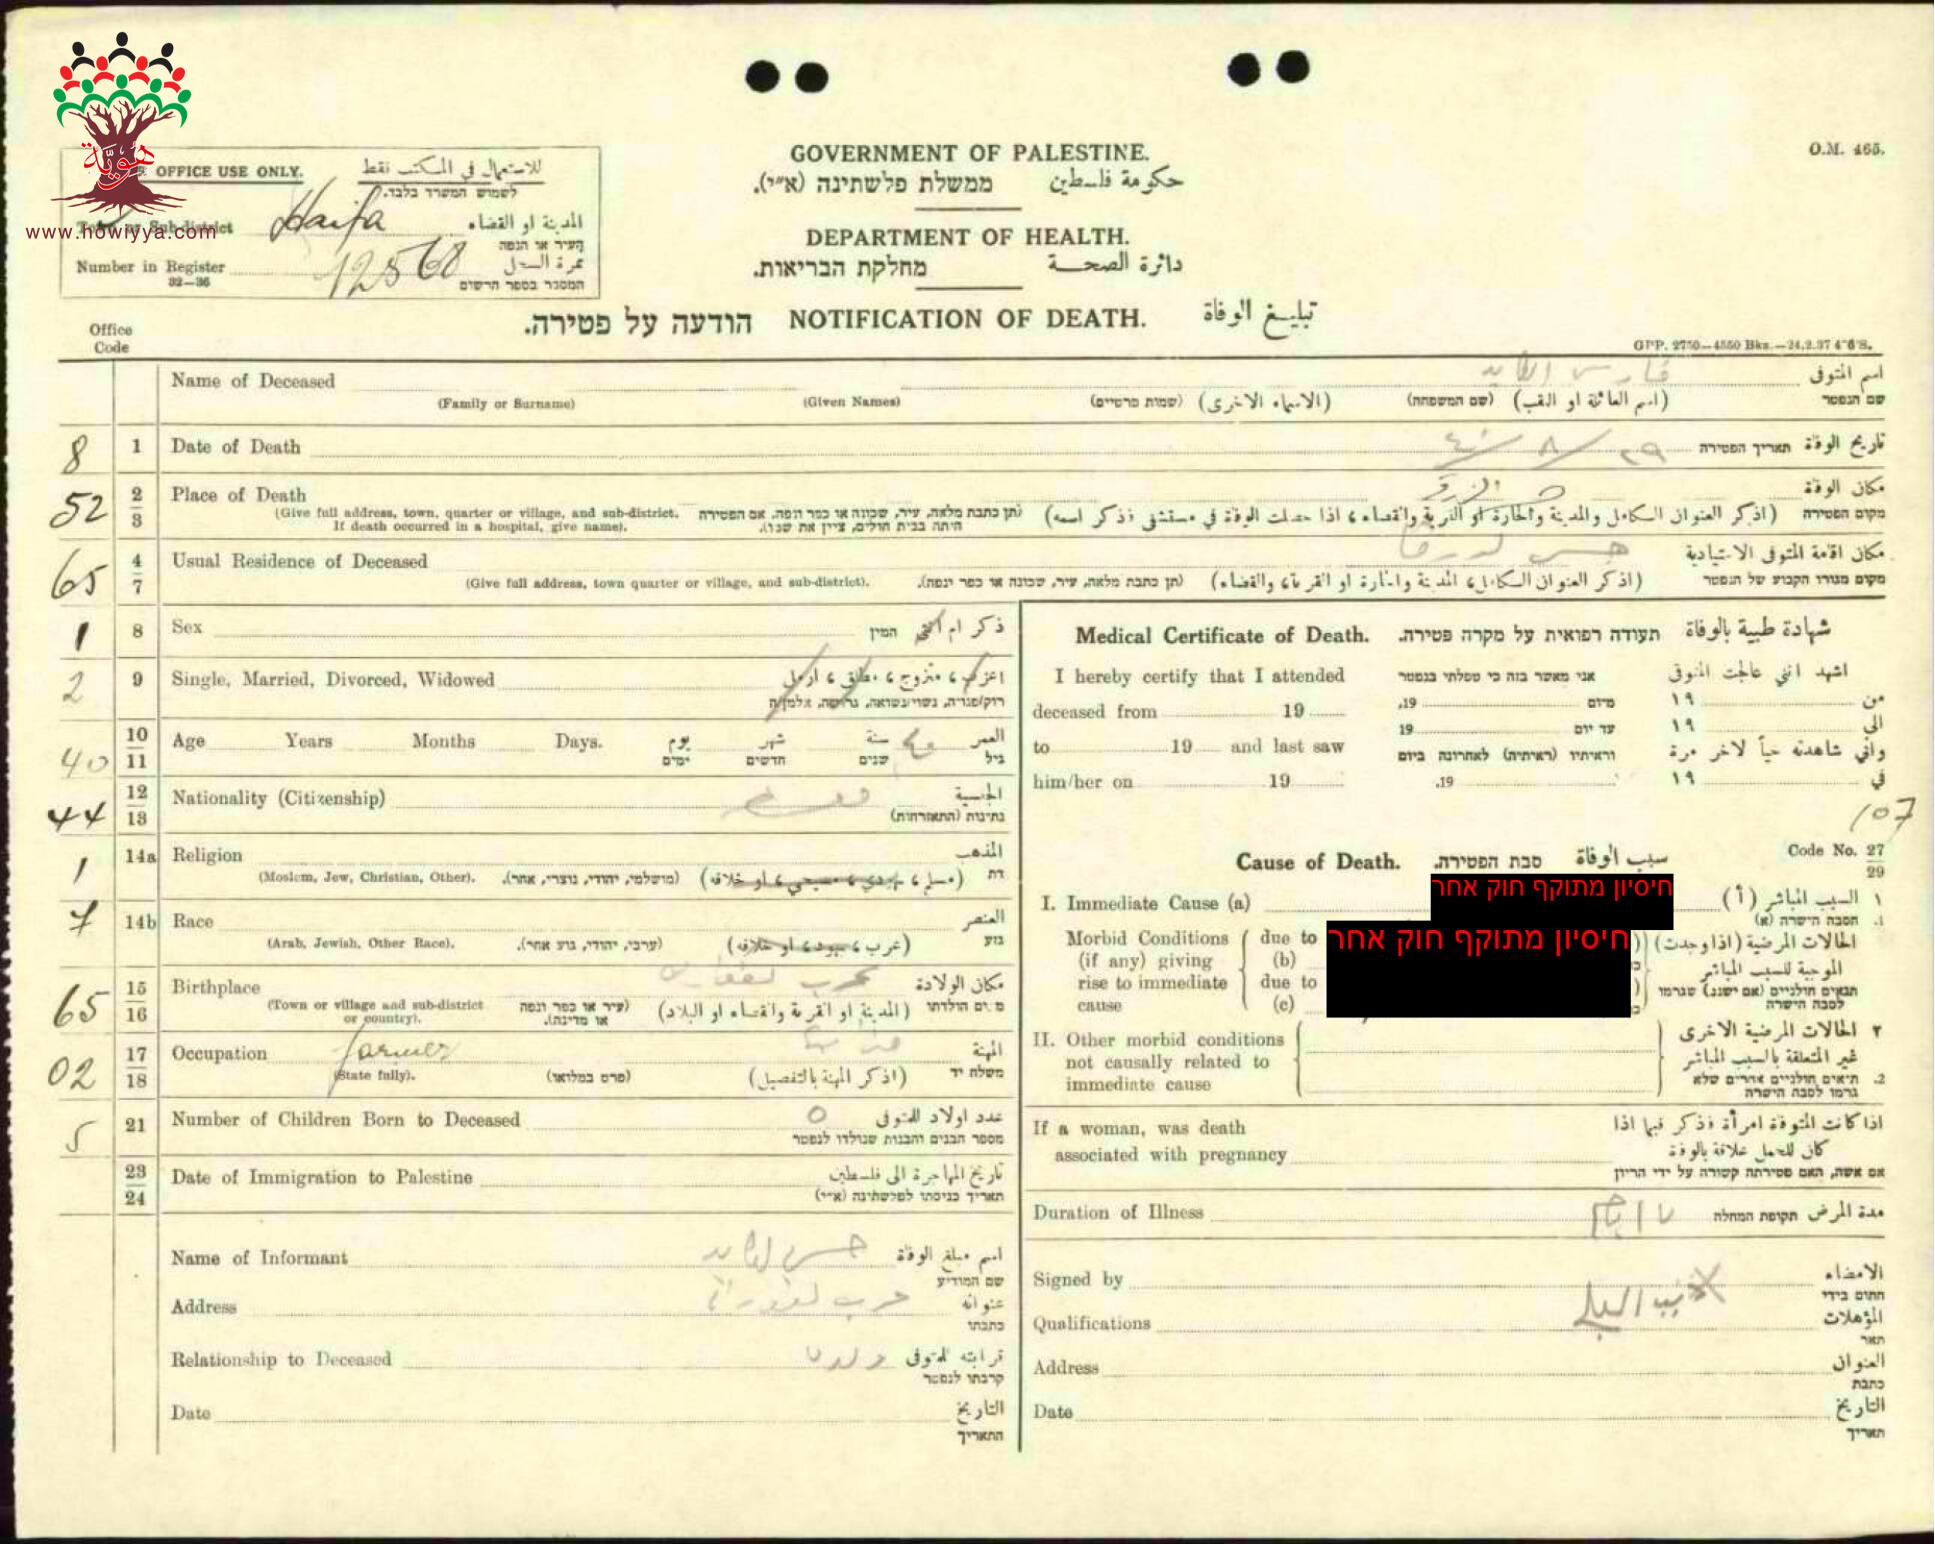 هويّة
www.howiyya.com
OFFICE USE ONLY. للاستعمال في المكتب فقط
לשמוש המשרד בלבד.
Town or Sub-district Haifa المدينة او القضاء
העיר או הנפה
Number in Register 12568 نمرة السجل
32—36 המספר בספר הרשום
O.M. 465.
GOVERNMENT OF PALESTINE.
ממשלת פלשתינה (א״י). حكومة فلسطين
DEPARTMENT OF HEALTH.
מחלקת הבריאות. دائرة الصحة
הודעה על פטירה. NOTIFICATION OF DEATH. تبليغ الوفاة
Office Code
GPP. 2750—4550 Bks.—24.2.37 4"6"S.
Name of Deceased فارس اسم المتوفى
(Family or Surname) (Given Names) (שמות פרטיים) (الاسماء الاخرى) (שם המשפחה) (اسم العائلة او اللقب) שם הנפטר
8 1 Date of Death ٢٩/٨/٤٠ תאריך הפטירה تاريخ الوفاة
52 2 3 Place of Death مكان الوفاة
(Give full address, town, quarter or village, and sub-district. If death occurred in a hospital, give name).
(תן כתבת מלאה, עיר, שכונה או כפר ונפה. אם הפטירה היתה בבית חולים, ציין את שמו).
(اذكر العنوان الكامل والمدينة والحارة او القرية والقضاء، اذا حصلت الوفاة في مستشفى فذكر اسمه) מקום הפטירה
65 4 7 Usual Residence of Deceased مكان اقامة المتوفى الاعتيادية
(Give full address, town quarter or village, and sub-district). (תן כתבת מלאה, עיר, שכונה או כפר ונפה). (اذكر العنوان الكامل، المدينة والحارة او القرية، والقضاء) מקום מגורו הקבוע של הנפטר
1 8 Sex המין ذكر ام انثى
2 9 Single, Married, Divorced, Widowed اعزب، متزوج، مطلق، ارمل
רוק/פנויה, נשוי/נשואה, גרושה, אלמן/ה
40 10 11 Age Years Months Days. يوم شهر سنة ٤٠ العمر
ימים חדשים שנים גיל
44 12 13 Nationality (Citizenship) الجنسية
נתינות (התאזרחות)
1 14a Religion المذهب
(Moslem, Jew, Christian, Other). (מושלמי, יהודי, נוצרי, אחר). (مسلم، يهودي، مسيحي، او خلافه) דת
7 14b Race العنصر
(Arab, Jewish, Other Race). (ערבי, יהודי, גזע אחר). (عرب، يهود، او خلافه) גזע
65 15 16 Birthplace عرب مكان الولادة
(Town or village and sub-district or country). (עיר או כפר ונפה או מדינה). (المدينة او القرية والقضاء او البلاد) מקום הולדתו
02 17 18 Occupation farmer المهنة
(State fully). (פרט במלואו) (اذكر المهنة بالتفصيل) משלח יד
5 21 Number of Children Born to Deceased ٥ عدد اولاد المتوفى
מספר הבנים והבנות שנולדו לנפטר
23 24 Date of Immigration to Palestine تاريخ المهاجرة الى فلسطين
תאריך כניסתו לפלשתינה (א״י)
Name of Informant حسن اسم مبلغ الوفاة
שם המודיע
Address عرب عنوانه
כתבתו
Relationship to Deceased قرابته للمتوفى
קרבתו לנפטר
Date التاريخ
התאריך
Medical Certificate of Death. תעודה רפואית על מקרה פטירה. شهادة طبية بالوفاة
I hereby certify that I attended אני מאשר בזה כי טפלתי בנפטר اشهد انني عالجت المتوفى
deceased from 19 מיום 19, من ١٩
to 19 and last saw עד יום 19 الى ١٩
him/her on 19 וראיתיו (ראיתיה) לאחרונה ביום 19. واني شاهدته حياً لآخر مرة في ١٩
107
Cause of Death. סבת הפטירה. سبب الوفاة Code No. 27 29
I. Immediate Cause (a) חיסיון מתוקף חוק אחר السبب المباشر (أ) ١
הסבה הישרה (א) 1.
Morbid Conditions (if any) giving rise to immediate cause due to (b) due to (c) חיסיון מתוקף חוק אחר
الحالات المرضية (اذا وجدت) الموجبة للسبب المباشر
תנאים חולניים (אם ישנם) שגרמו לסבה הישרה
II. Other morbid conditions not causally related to immediate cause
الحالات المرضية الاخرى ٢ غير المتعلقة بالسبب المباشر
2. תנאים חולניים אחרים שלא גרמו לסבה הישרה
If a woman, was death associated with pregnancy اذا كانت المتوفاة امرأة فذكر فيما اذا كان للحمل علاقة بالوفاة
אם אשה, האם פטירתה קשורה על ידי הריון
Duration of Illness ٧ ايام תקופת המחלה مدة المرض
Signed by الامضاء
חתום בידי
Qualifications المؤهلات
תאר
Address العنوان
כתבת
Date التاريخ
תאריך